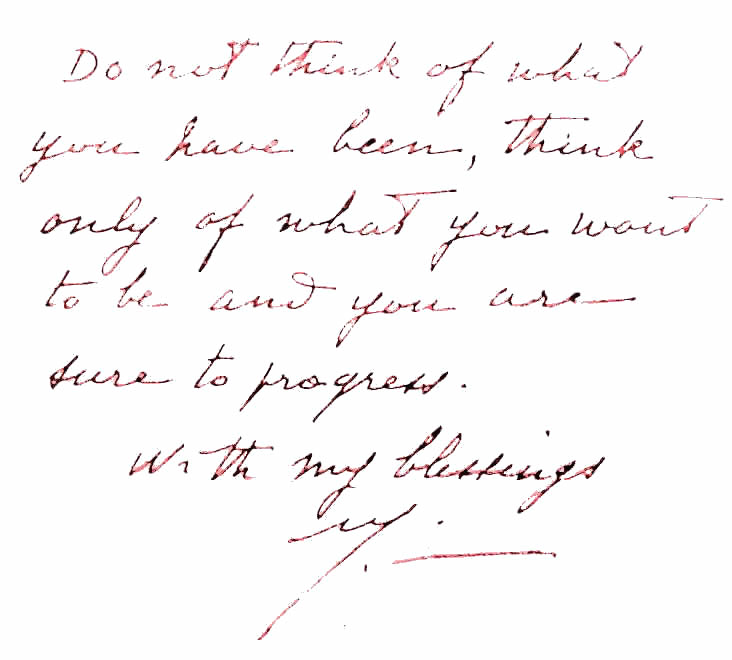 Do not think of what
you have been, think
only of what you want
to be and you are
sure to progress.
With my blessings